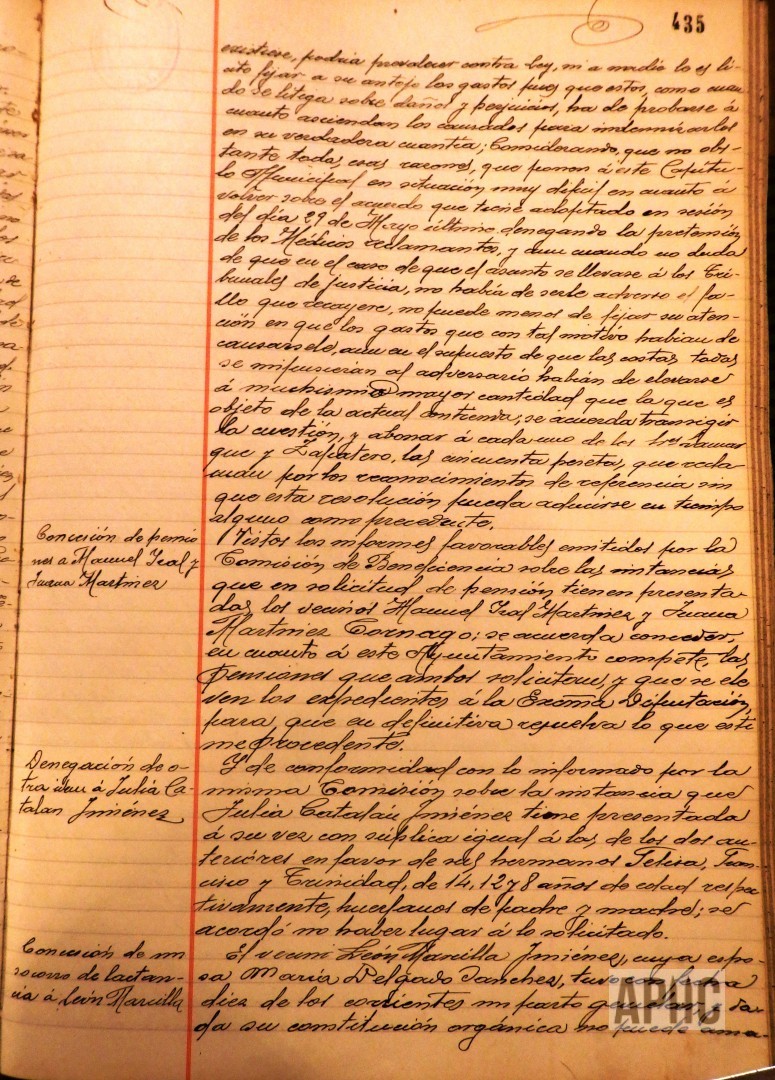 435
existiese, podria prevalecer contra ley, ni a nadie le es li-
cito fijar a su antojo los gastos pues que estos, como cuan-
do se litiga sobre daños y perjuicios, ha de probarse á
cuanto asciendan los causados para indemnizarlos
en su verdadera cuantía; Considerando, que no obs-
tante todas esas razones, que ponen á este Capítu-
lo Municipal en situación muy dificil en cuanto á
volver sobre el acuerdo que tiene adoptado en sesión
del dia 29 de Mayo último denegando la pretensión
de los Médicos reclamantes, y aun cuando no duda
de que en el caso de que el asunto se llevase á los Tri-
bunales de justicia, no habia de serle adverso el fa-
llo que recayere, no puede menos de fijar su aten-
ción en que los gastos que con tal motivo habian de
causarsele, aun en el supuesto de que las costas todas
se impusieran al adversario habián de elevarse
á muchisima mayor cantidad que la que es
objeto de la actual contienda; se acuerda transigir
la cuestión, y abonar á cada uno de los Sres
que y Zapatero, las cincuenta peseta, que recla-
man por los reconocimientos de referencia sin
que esta resolución pueda aducirse en tiempo
alguno como precedente.
Concesión de pensio
nes a Manuel Iral y
Juana Martinez
Vistos los informes favorables emitidos por la
Comisión de Beneficencia sobre las instancias
que en solicitud de pensión tienen presenta-
das, los vecinos Manuel Iral Martinez y Juana
Martinez Cornago; se acuerda conceder,
en cuanto á este Ayuntamiento compete, las
pensiones que ambos solicitan, y que se ele
ven los expedientes á la Excma Diputación,
para que en definitiva resuelva lo que esti
me procedente.
Denegación de o-
tra idem á Julia Ca-
talan Jimenez
Y de conformidad con lo informado por la
misma Comisión sobre la instancia que
Julia Catalán Jimenez tiene presentada
á su vez con súplica igual á las de los dos an-
teriores en favor de sus hermanos Felisa, Fran-
cisco y Trinidad, de 14, 12 y 8 años de edad respec-
tivamente, huerfanos de padre y madre; se
acordó no haber lugar á lo solicitado.
Concesión de un
socorro de lactan-
cia á León Marcilla
El vecino León Marcilla Jiménez, cuya espo-
sa María Delgado Sanchez, tuvo con fecha
diez de los corrientes un parto gemelar, y da-
da su constitución orgánica no puede ama-
APHC